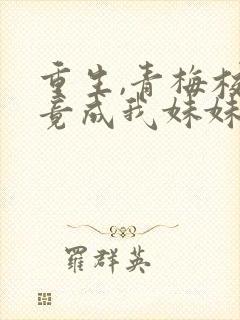 重生,青梅校
竟成我妹妹
羅群英